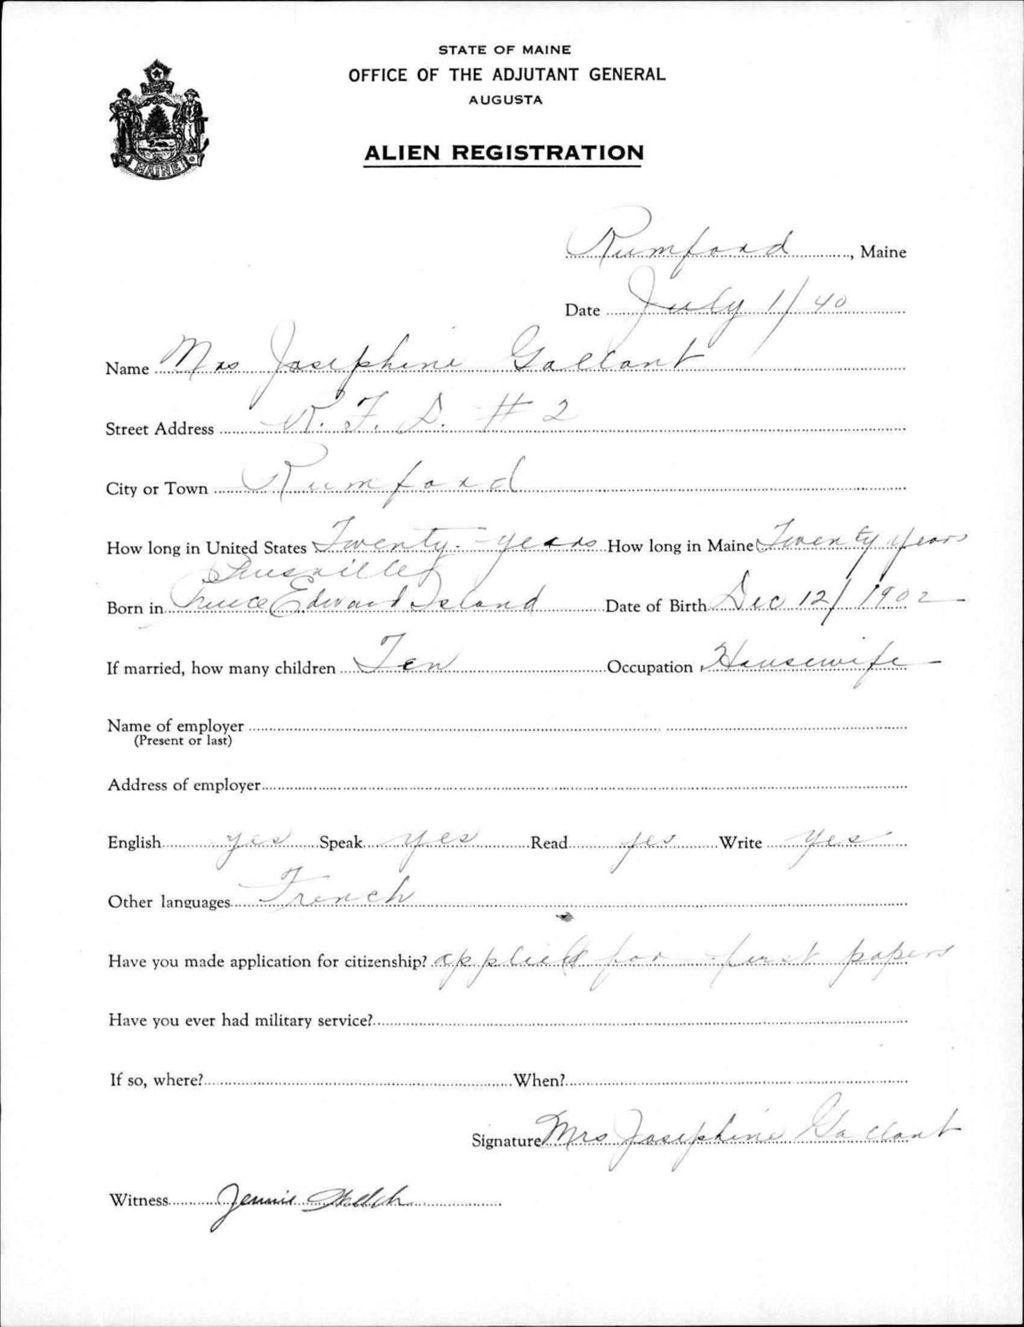 STATE OF MAINE
OFFICE OF THE ADJUTANT GENERAL
AUGUSTA
ALIEN REGISTRATION
MAINE
Rumford, Maine
Date July 1/40
Name Mrs Josephine Gallant
Street Address R. F. D. #2
City or Town Rumford
How long in United States Twenty-years How long in Maine Twenty years
Born in Prince Edward Island Date of Birth Dec 12/1902
If married, how many children Ten Occupation Housewife
Name of employer
(Present or last)
Address of employer
English yes Speak yes Read yes Write yes
Other languages French
Have you made application for citizenship? applied for first papers
Have you ever had military service?
If so, where? When?
Signature Mrs Josephine Gallant
Witness Jennie Welch